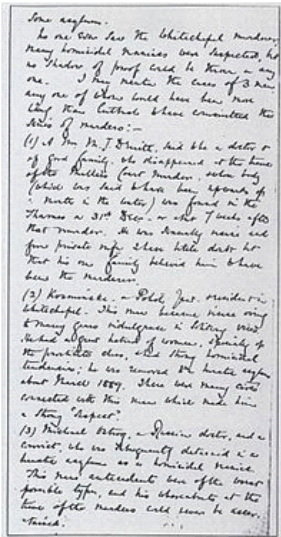 some asylum.
No one ever saw the Whitechapel murderer,
many homicidal maniacs were suspected, but
no shadow of proof could be thrown on any
one. I may mention the cases of 3 men,
any one of whom would have been more
likely than Cutbush to have committed this
series of murders:—
(1) A Mr M. J. Druitt, said to be a doctor &
of good family, who disappeared at the time
of the Miller's Court murder, whose body
(which was said to have been upwards of
a month in the water) was found in the
Thames on 31st Decr. or about 7 weeks after
that murder. He was sexually insane and
from private inf I have little doubt but
that his own family believed him to have
been the murderer.
(2) Kosminski, a Polish Jew, resident in
Whitechapel. This man became insane owing
to many years indulgence in solitary vices.
He had a great hatred of women, specially of
the prostitute class, & had strong homicidal
tendencies; he was removed to a lunatic asylum
about March 1889. There were many circs
connected with this man which made him
a strong "suspect".
(3) Michael Ostrog, a Russian doctor, and a
convict, who was subsequently detained in a
lunatic asylum as a homicidal maniac.
This man's antecedents were of the worst
possible type, and his whereabouts at the
time of the murders could never be ascer-
tained.